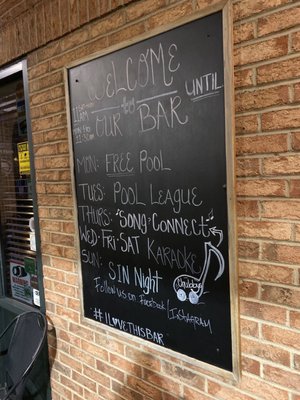 WELCOME
to
OUR BAR
UNTIL
MON: FREE POOL
TUES: POOL LEAGUE
THURS: "SONG CONNECT"
WED·FRI·SAT KARAOKE
SUN: SIN NIGHT
Follow us on Facebook | INSTAGRAM
#ILOVETHISBAR